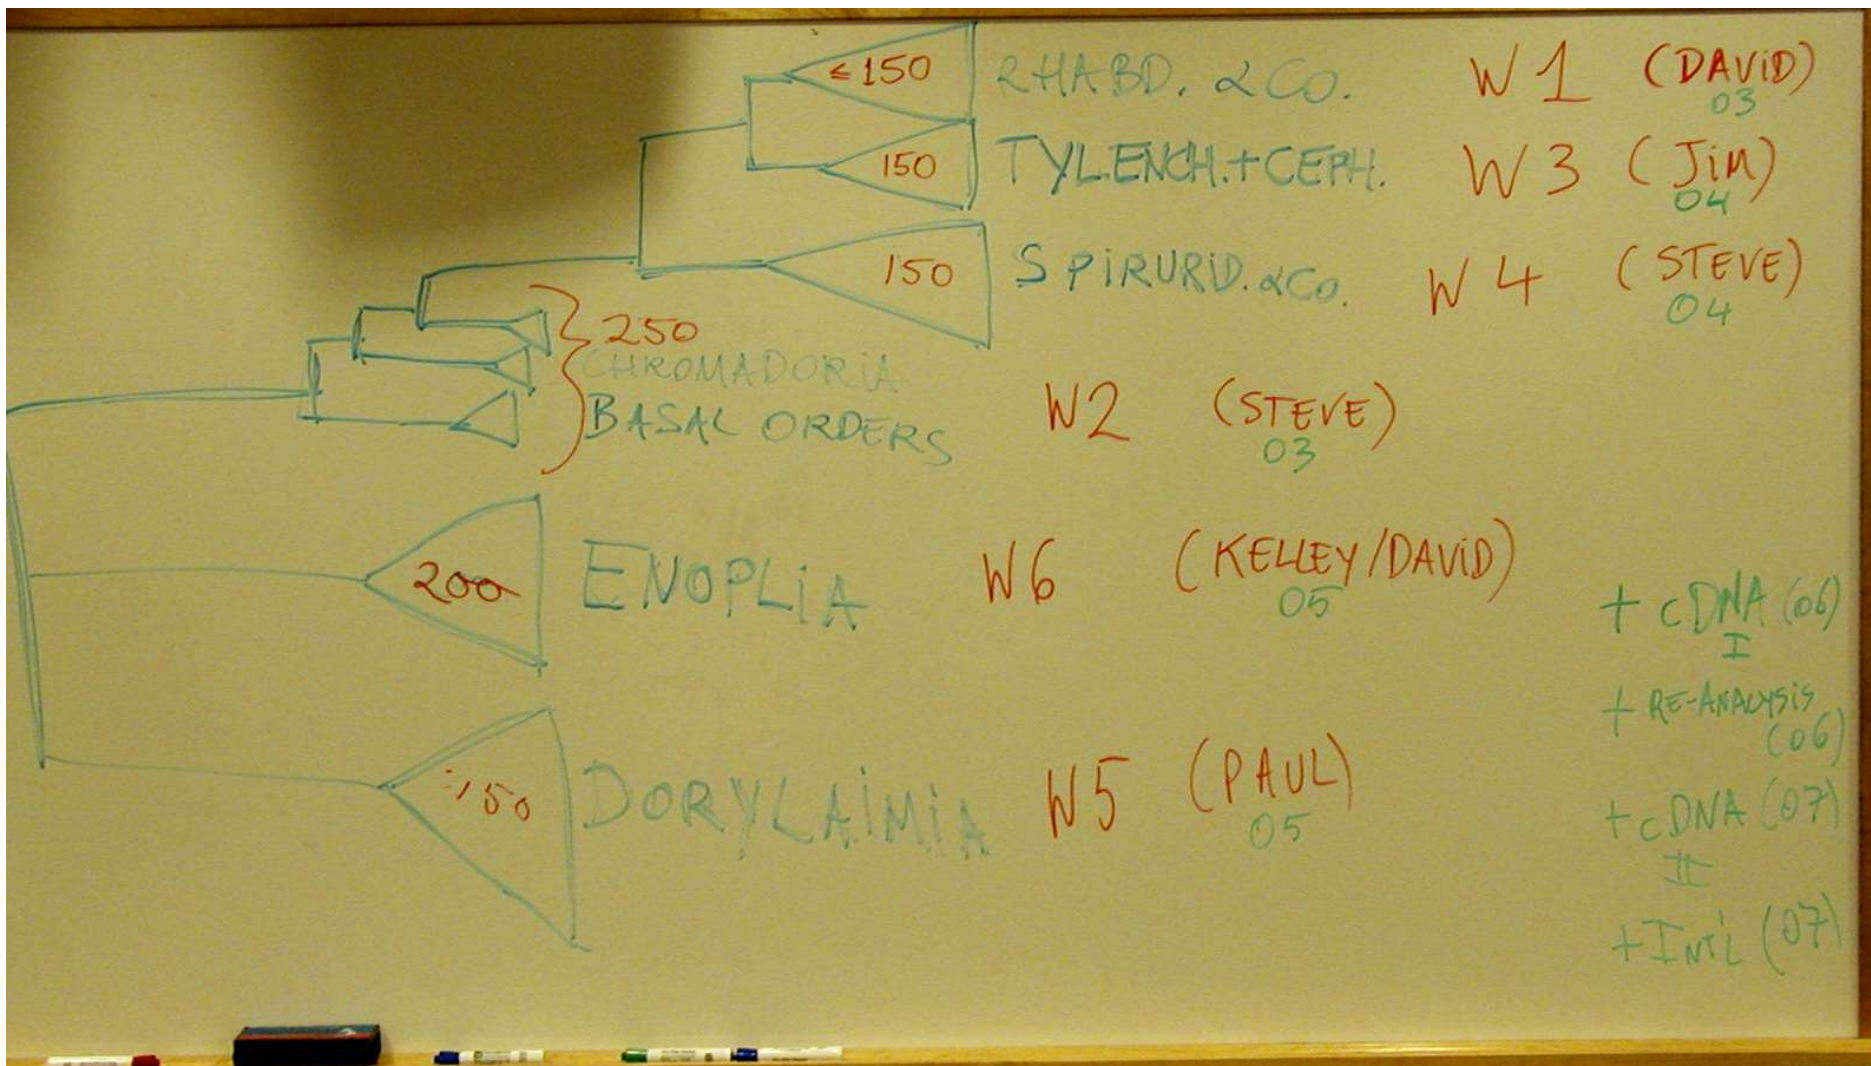 ≤150 RHABD. & CO. W1 (DAViD)
03
150 TYLENCH.+CEPH. W3 (JiM)
04
150 SPiRURiD. & Co. W4 (STEVE)
04
250
CHROMADORiA
BASAL ORDERS W2 (STEVE)
03
200 ENOPLiA W6 (KELLEY/DAViD)
05
150 DORYLAiMiA W5 (PAUL)
05
+ cDNA (06)
I
+ RE-ANALYSiS
(06)
+ cDNA (07)
II
+ INT'L (07)